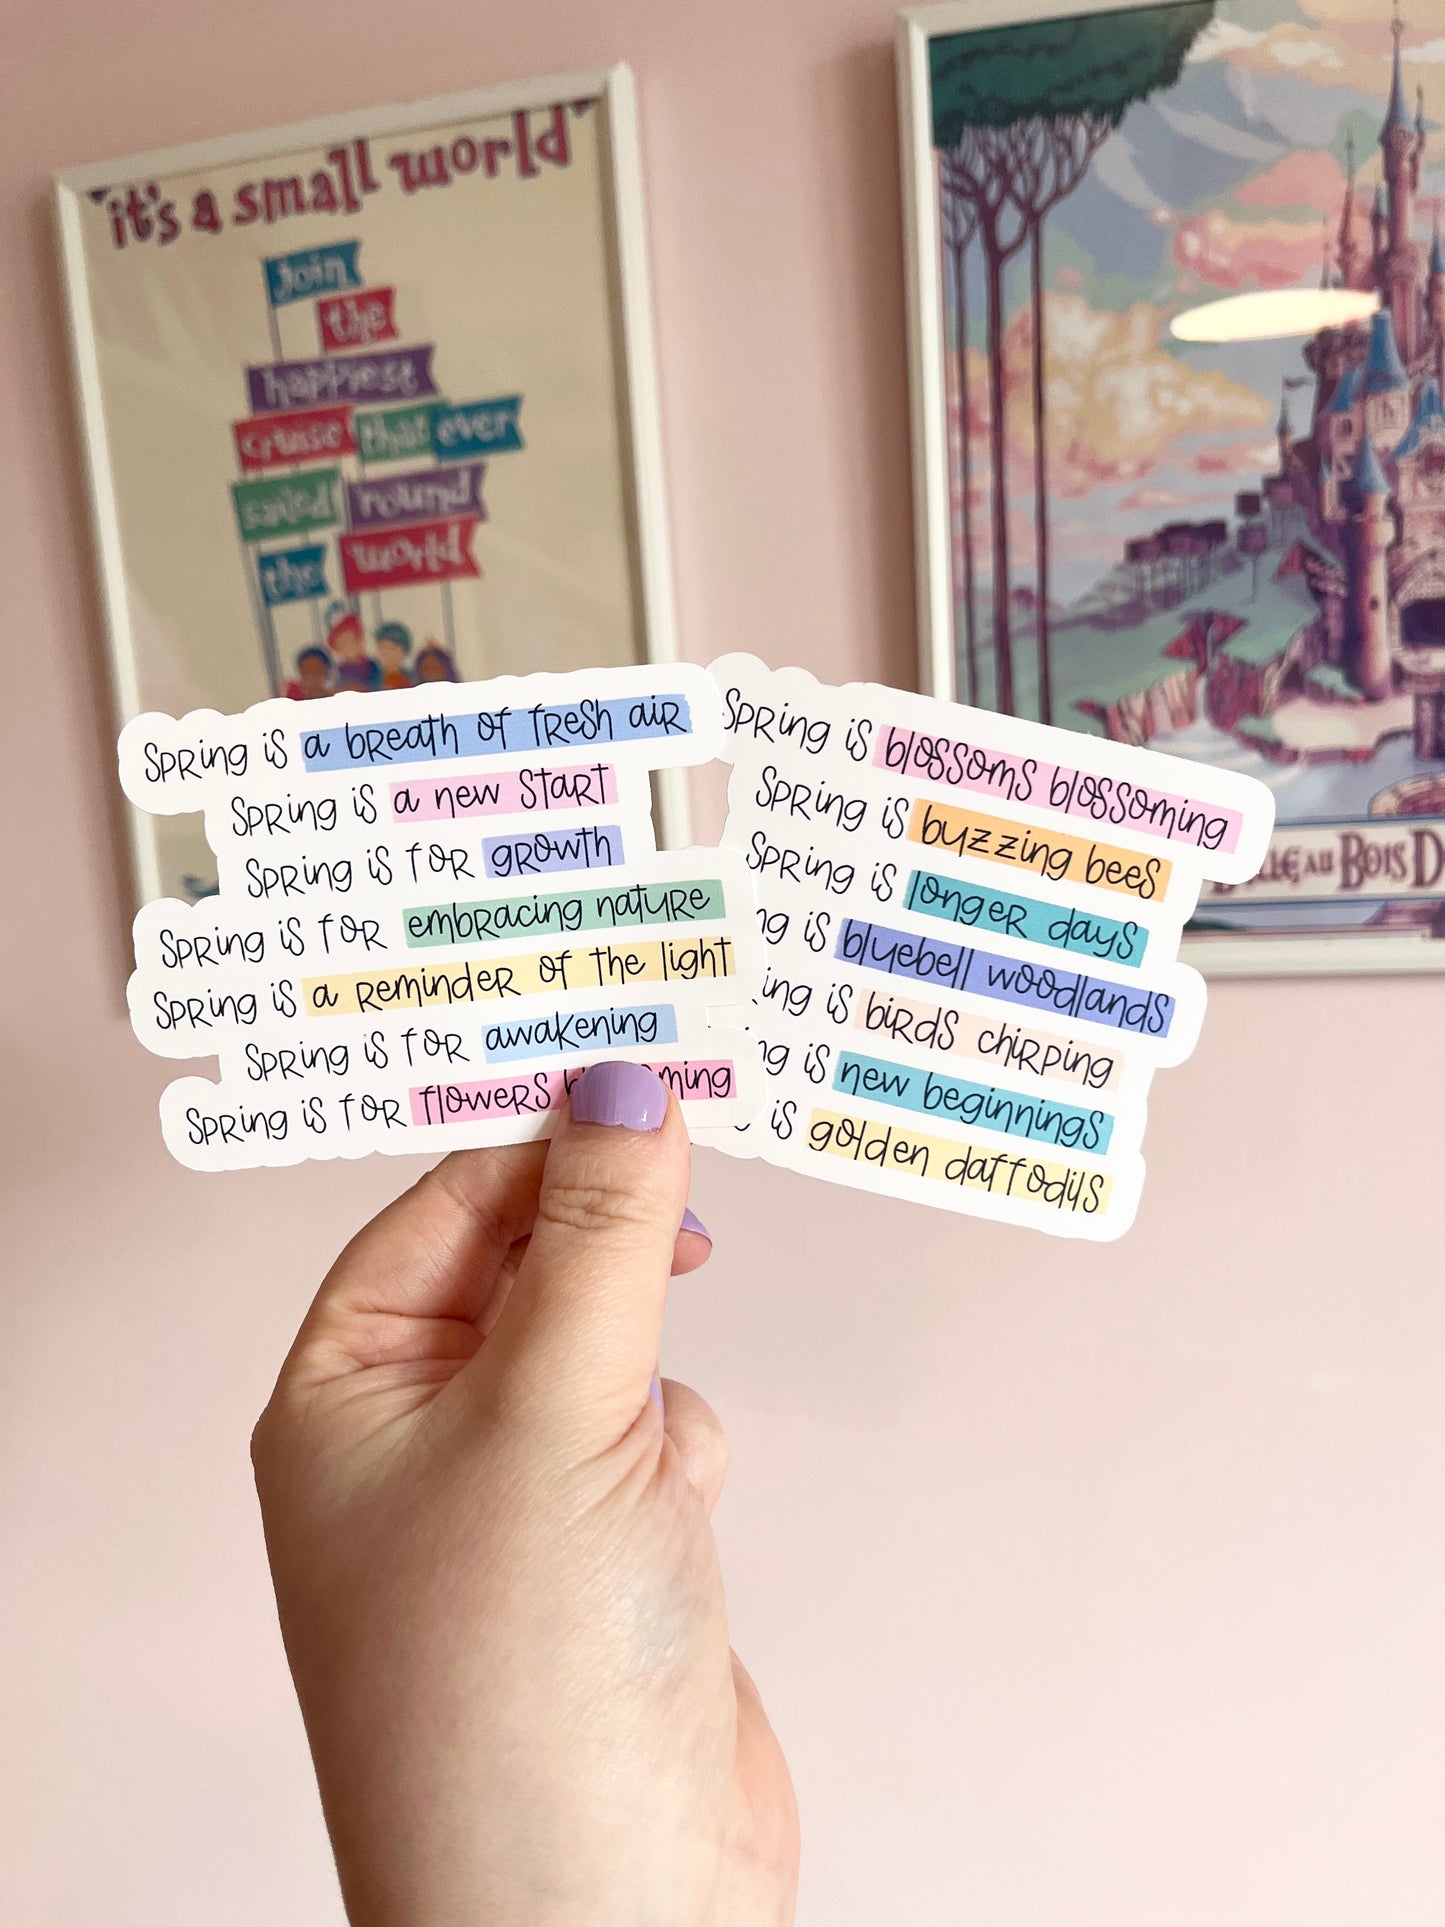 it's a small world
Join
the
happiest
cruise that ever
sailed 'round
the world
Spring is a breath of fresh air
Spring is a new start
Spring is for growth
Spring is for embracing nature
Spring is a reminder of the light
Spring is for awakening
Spring is for flowers
Spring is blossoms blossoming
Spring is buzzing bees
Spring is longer days
is bluebell woodlands
is birds chirping
is new beginnings
is golden daffodils
au Bois D